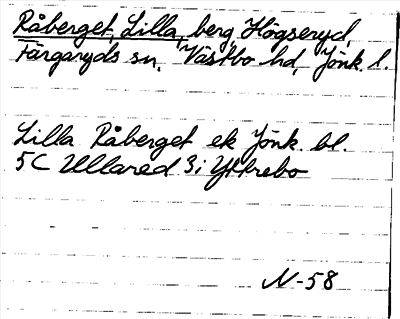 Råberget, Lilla, berg, Högseryd,
Färgaryds sn, Västbo hd, Jönk. l.
Lilla Råberget ek Jönk. bl.
5C Ullared 3i Yttrebo
N-58